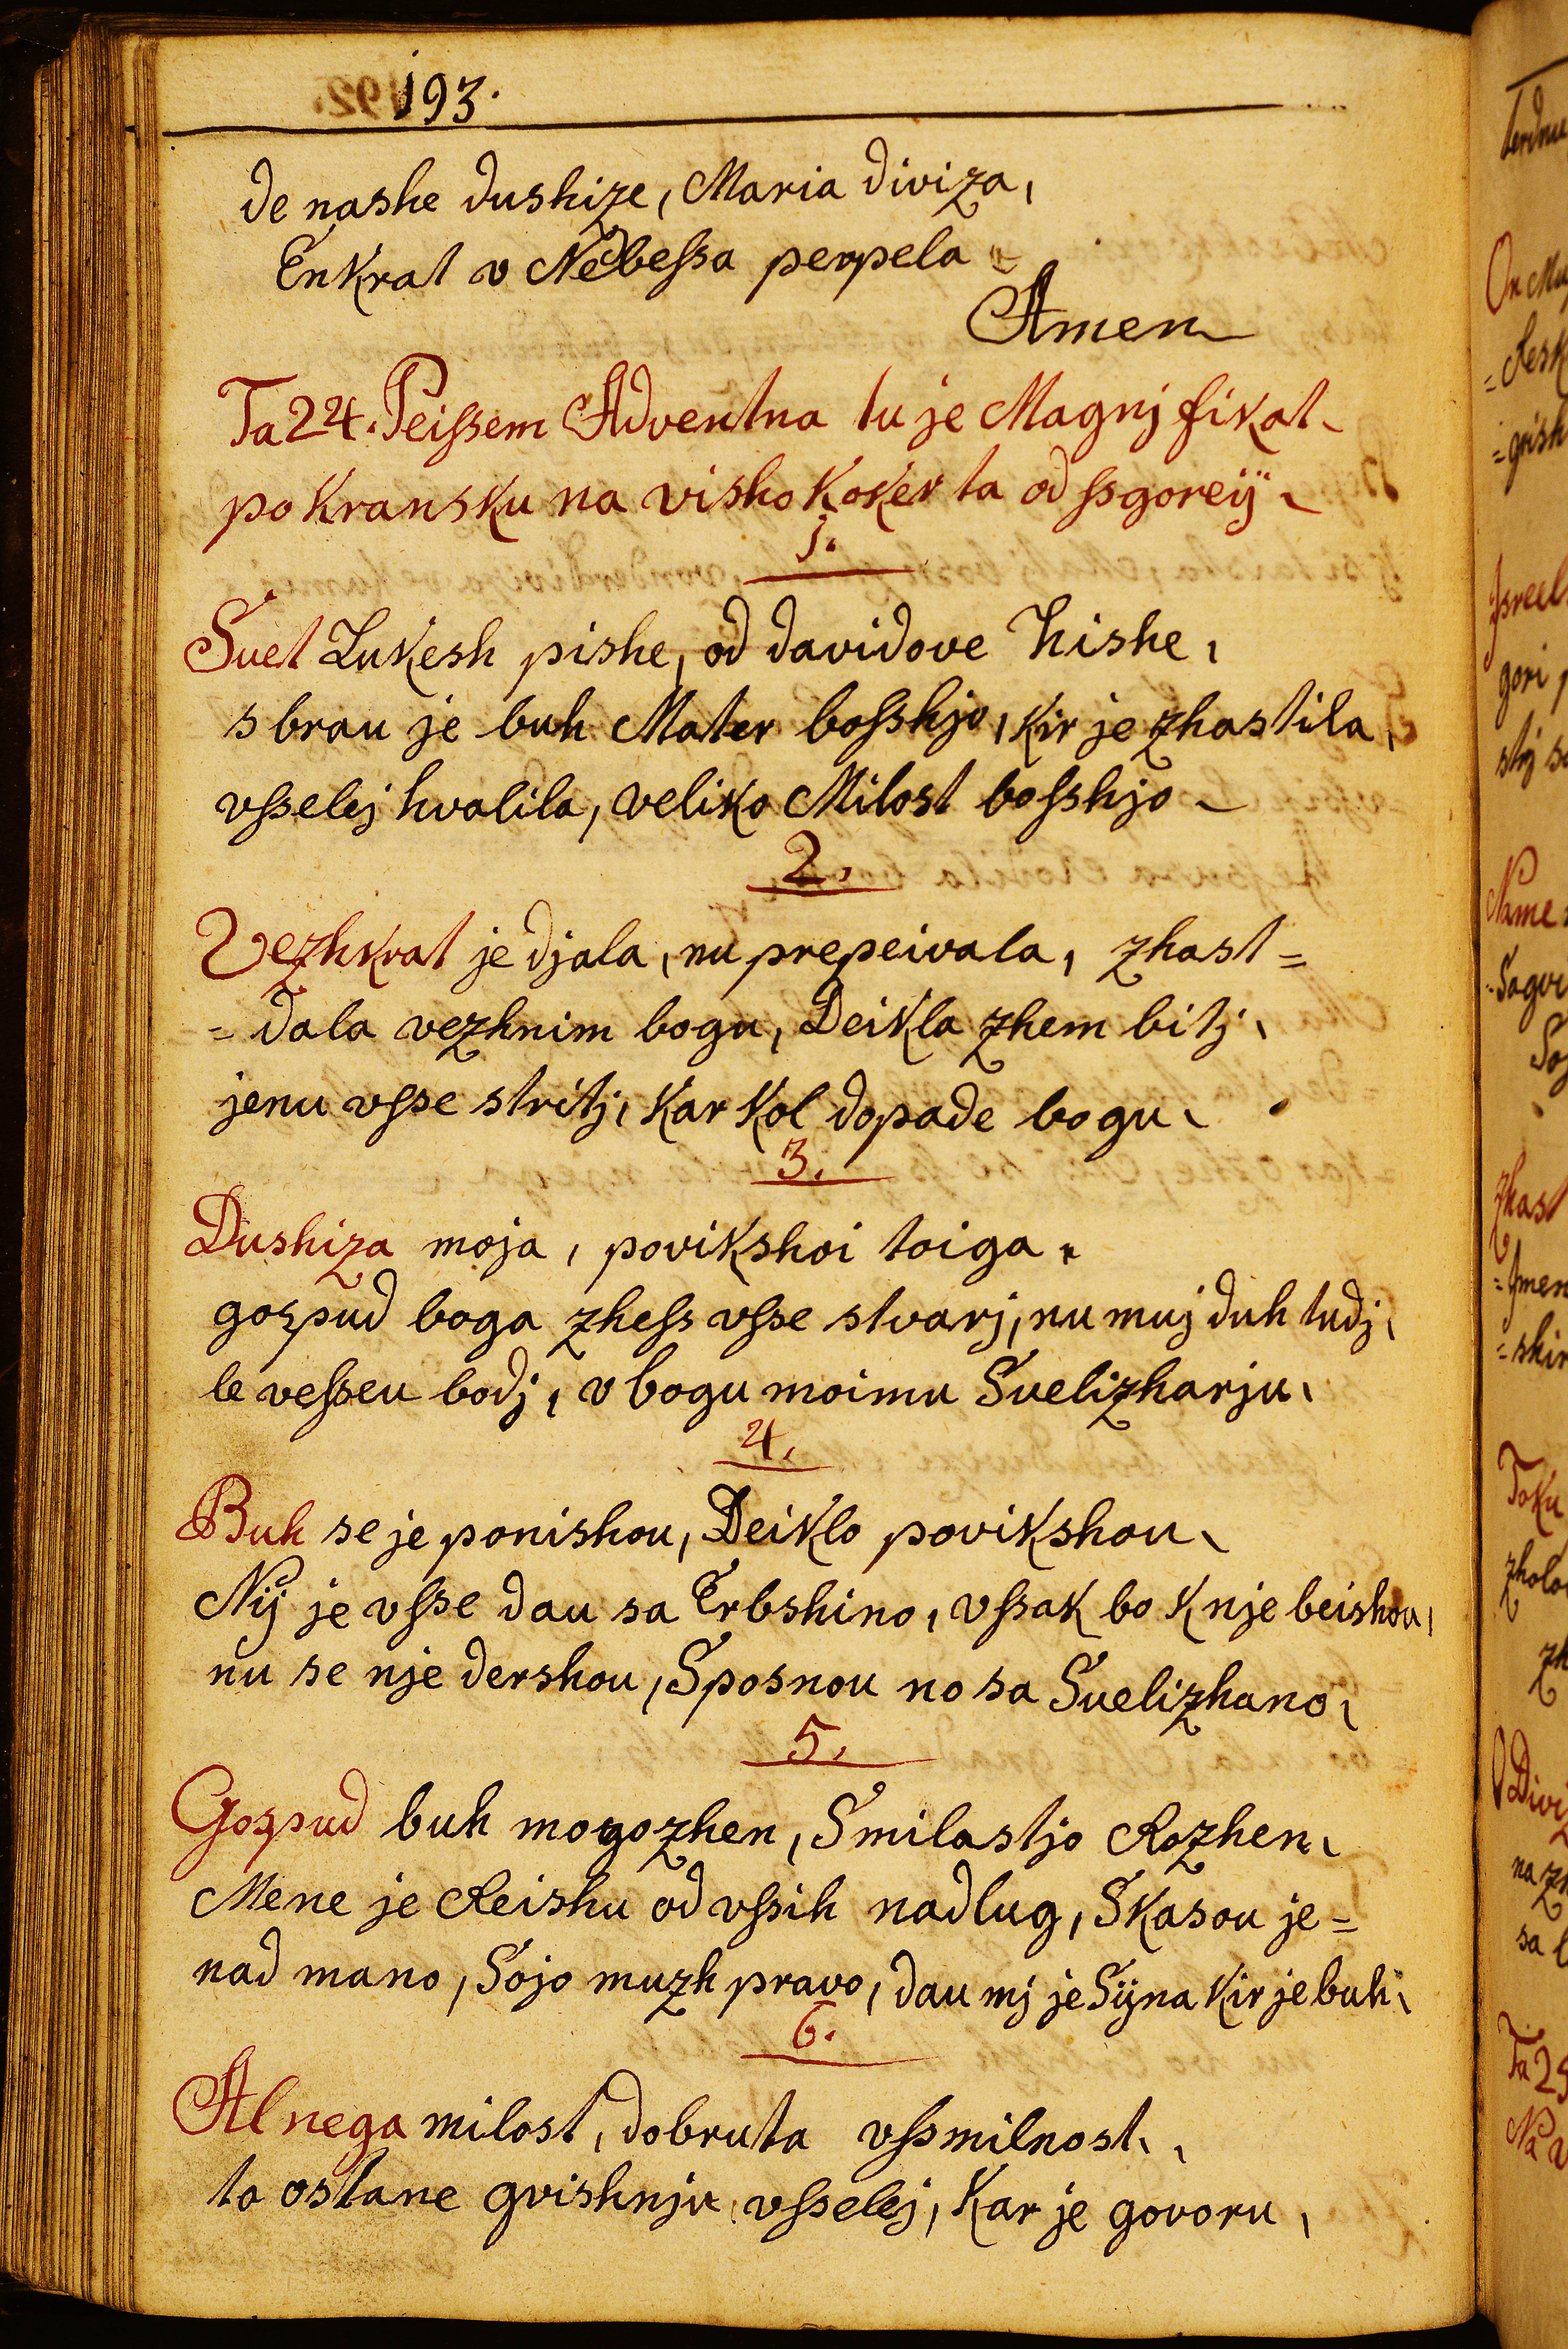 193.
de nashe dushize, Maria diviza,
Enkrat v Nebeſsa perpela
Amen
Ta 24. Peiſsem Adventna tu je Magnjfikat
po kransku na visho koker ta od ſsgoreÿ
1.
Svet Lukesh pishe, od davidove hishe,
sbrau je buh Mater boſshjo, kir je zhastila,
vſselej hvalila, veliko Milost boſshjo
2.
Vezhkrat je djala, nu prepeivala, zhast=
=dala vezhnim bogu, Deikla zhem bitj,
jenu vſse stritj, kar kol dopade bogu,
3.
Dushiza moja, povikshoi toiga
gospud boga zheſs vſse stvarj, nu muj duh tudj,
le veſseu bodj, v bogu moimu Suelizharju,
4.
Buh se je ponishou, Deiklo povikshou,
Nÿ je vſse dau sa Erbshino, vſsak bo k nje beishou,
nu se nje dershou, Sposnou no sa Suelizhano,
5.
Gospud buh mogozhen, Smilostjo Rozhen,
Mene je Reishu od vſsih nadlug, Skasou je=
nad mano, Sojo muzh pravo, dau mj je Sÿna kir je buh,
6.
Al nega milost, dobruta vſsmilnost,
to ostane gvishnju vſselej, kar je govoru,